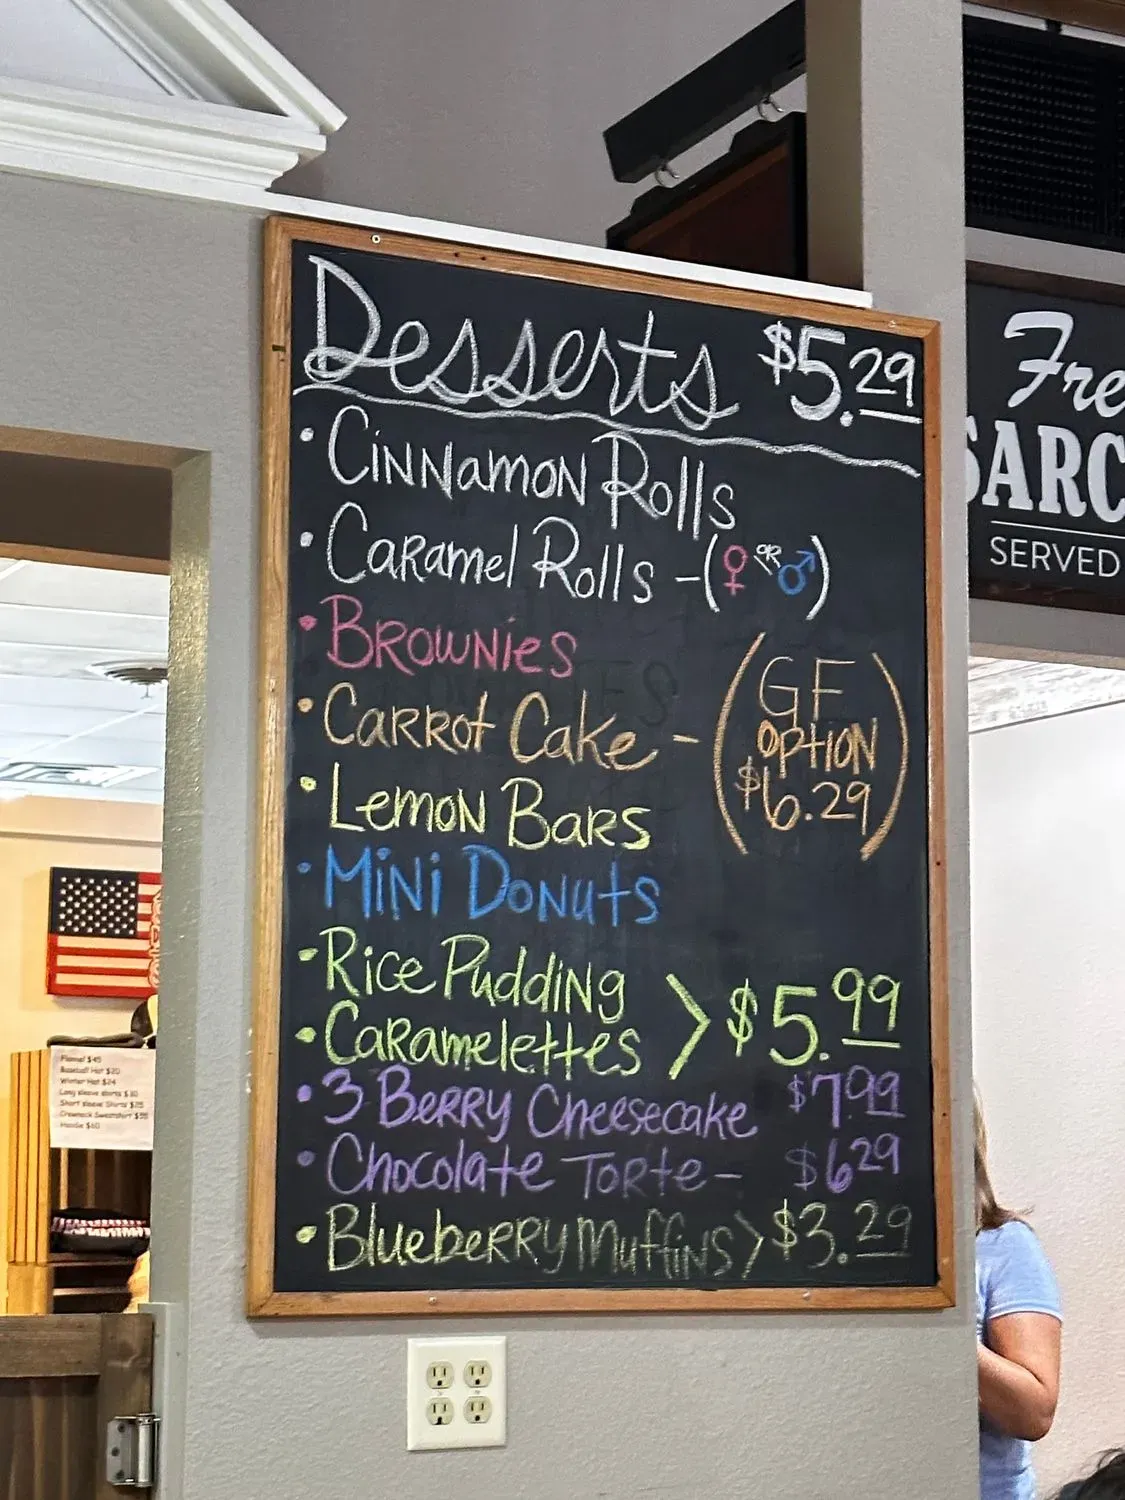 Desserts $5.29
• Cinnamon Rolls
• Caramel Rolls - (♀ OR ♂)
• Brownies
• Carrot Cake - (GF
option
$6.29)
• Lemon Bars
• Mini Donuts
• Rice Pudding
• Caramelettes > $5.99
• 3 Berry Cheesecake $7.99
• Chocolate Torte - $6.29
• Blueberry Muffins > $3.29
Fre
SARC
SERVED
Flannel $45
Baseball Hat $20
Winter Hat $24
Long sleeve shirts $30
Short Sleeve Shirts $25
Crewneck Sweatshirt $35
Hoodie $60